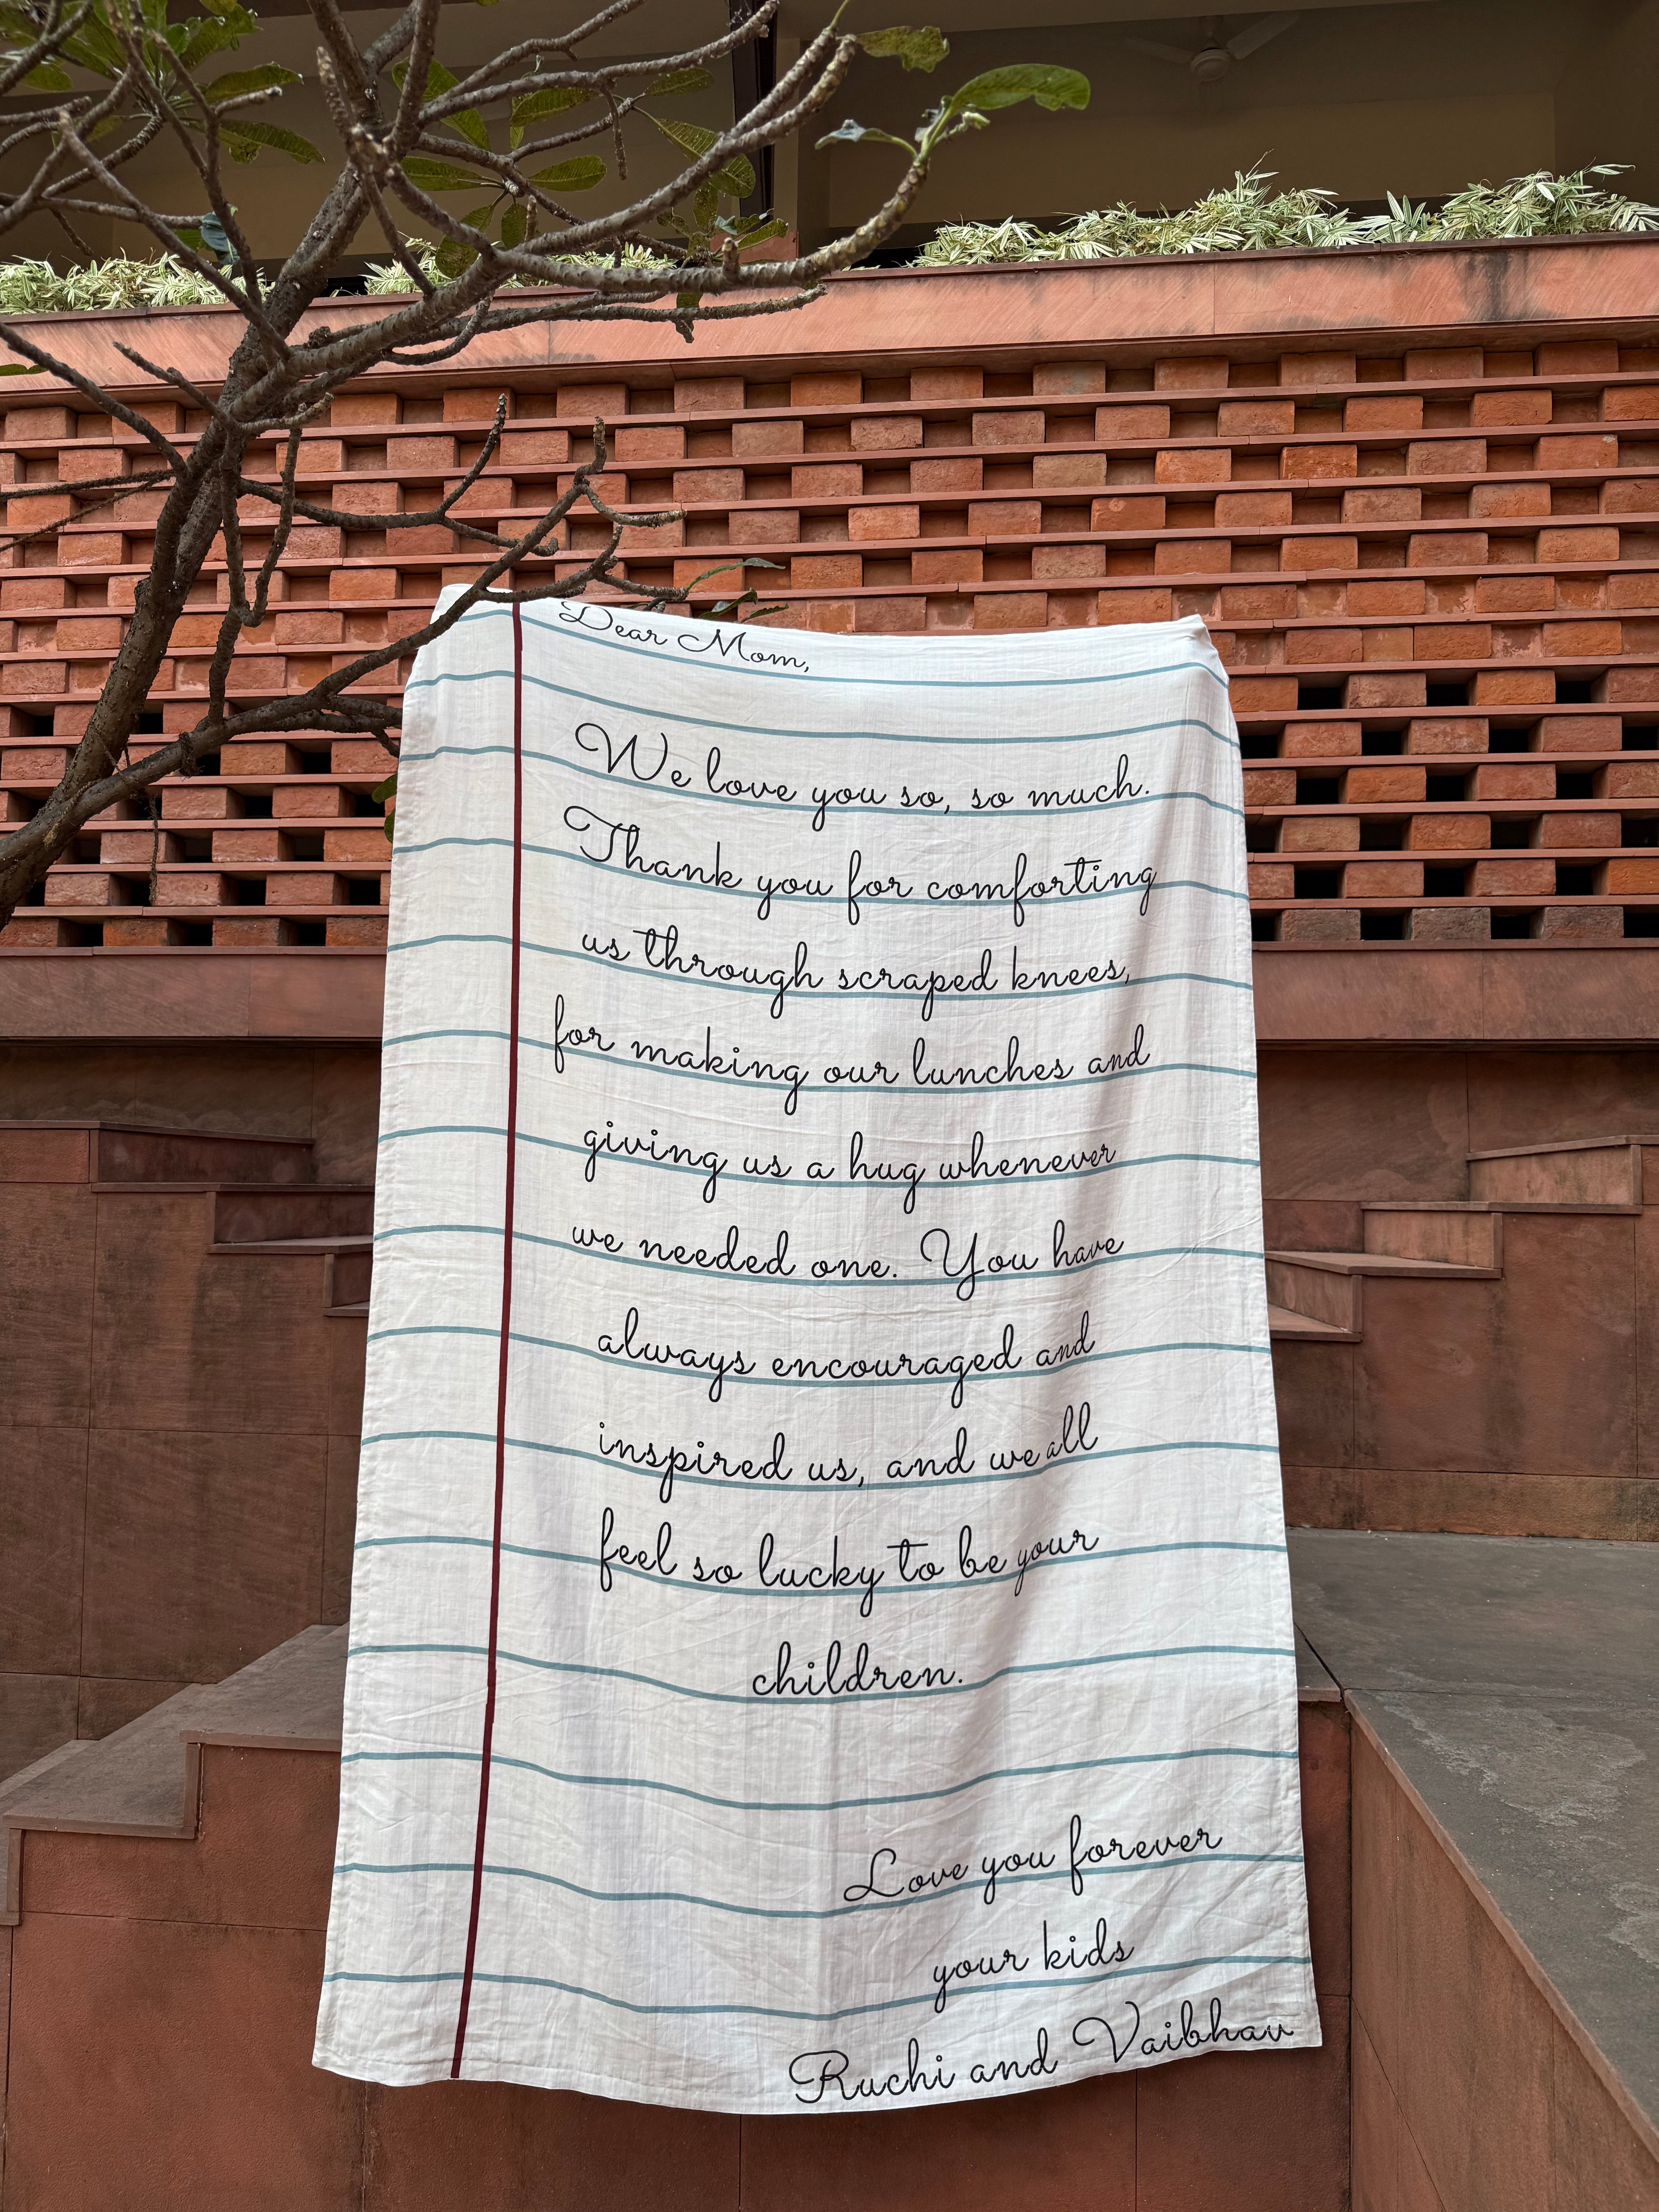 Dear Mom,
We love you so, so much.
Thank you for comforting
us through scraped knees,
for making our lunches and
giving us a hug whenever
we needed one. You have
always encouraged and
inspired us, and we all
feel so lucky to be your
children.
Love you forever
your kids
Ruchi and Vaibhav